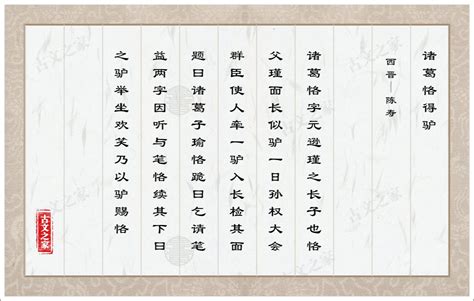 诸葛恪得驴
西晋—陈寿
诸葛恪字元逊瑾之长子也恪
父瑾面长似驴一日孙权大会
群臣使人牵一驴入长检其面
题曰诸葛子瑜恪跪曰乞请笔
益两字因听与笔恪续其下曰
之驴举坐欢笑乃以驴赐恪
古文之家